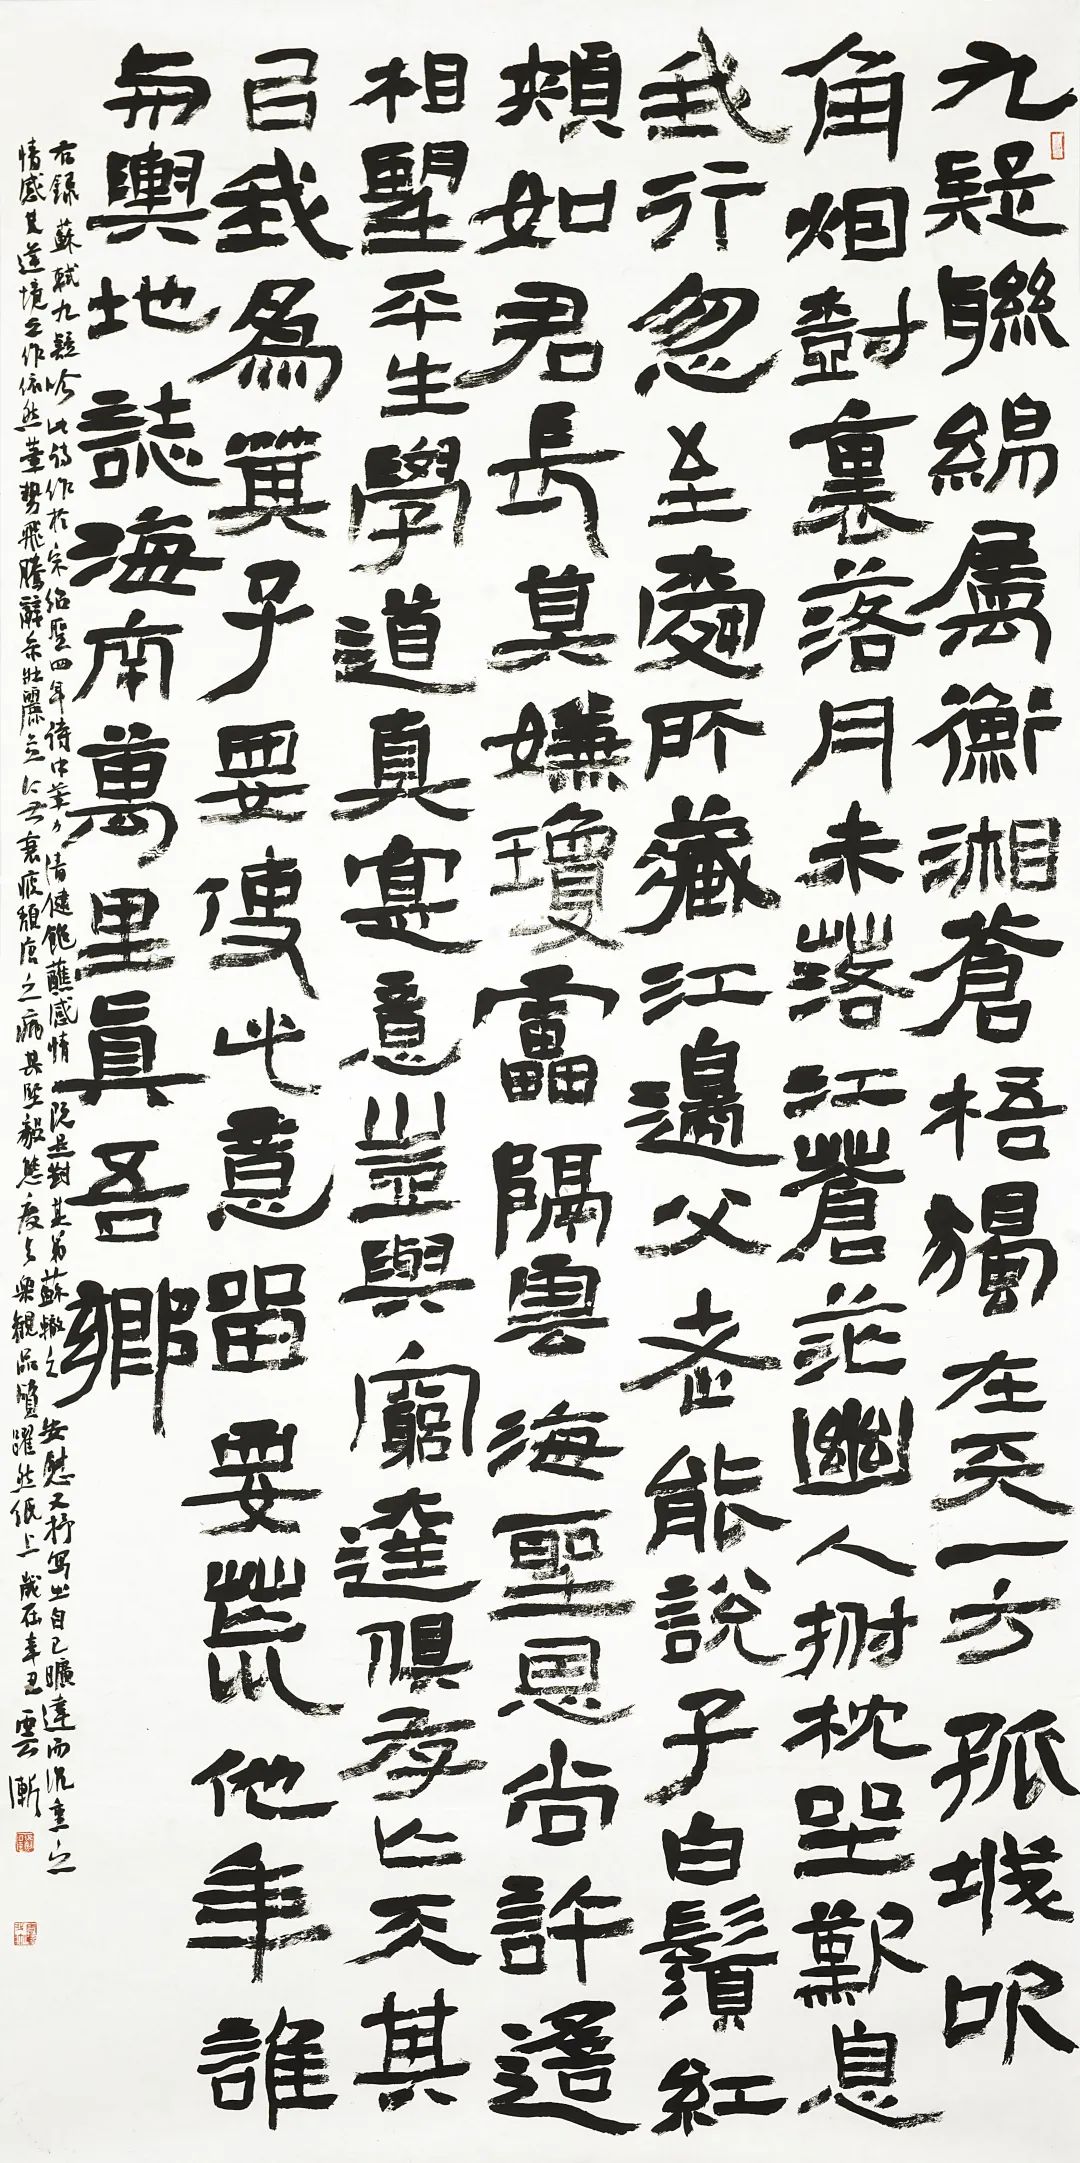 九疑聯綿屬衡湘蒼梧獨在天一方孤城吹
角烟尌裏落月未落江蒼茫幽人拊枕坐歎息
我行忽至舜所藏江邊父老能說子白鬚紅
頰如君長莫嫌瓊靁隔雲海聖恩尚許遙
相望平生學道真寔意豈與窮達俱存亡天其
㠯我為箕子要使此意留要荒他年誰
輿地誌海南萬里真吾鄉
右錄蘇軾九疑吟此詩作於宋紹聖四年詩中筆力清健飽蘸感情既是對其弟蘇轍之安慰又抒寫出自己曠達而沉重之
情感其逆境之作依然筆勢飛騰辭采壯麗无衰疲頹唐之病其堅毅態度与樂觀品質躍然紙上歲在辛丑雲漸